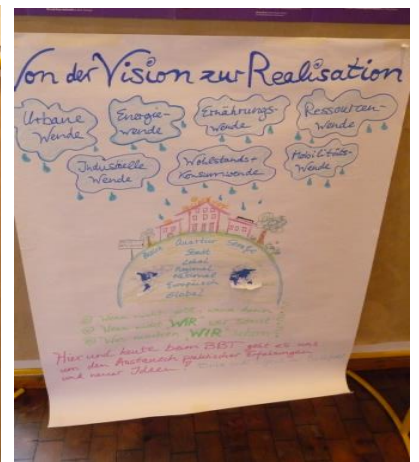 Von der Vision zur Realisation
Urbane Wende
Energie-
wende
Ernährungs-
wende
Ressourcen-
wende
Industrielle
Wende
Wohlstands +
Konsumwende
Mobilitäts-
Wende
Haus Quartier Straße
Stadt
Lokal
Regional
National
Europäisch
Global
Wenn nicht jetzt, wann dann
Wenn nicht WIR wer sonst
WIR
Hier und heute beim BBT geht es uns
um den Austausch praktischer Erfahrungen
und neuer Ideen!